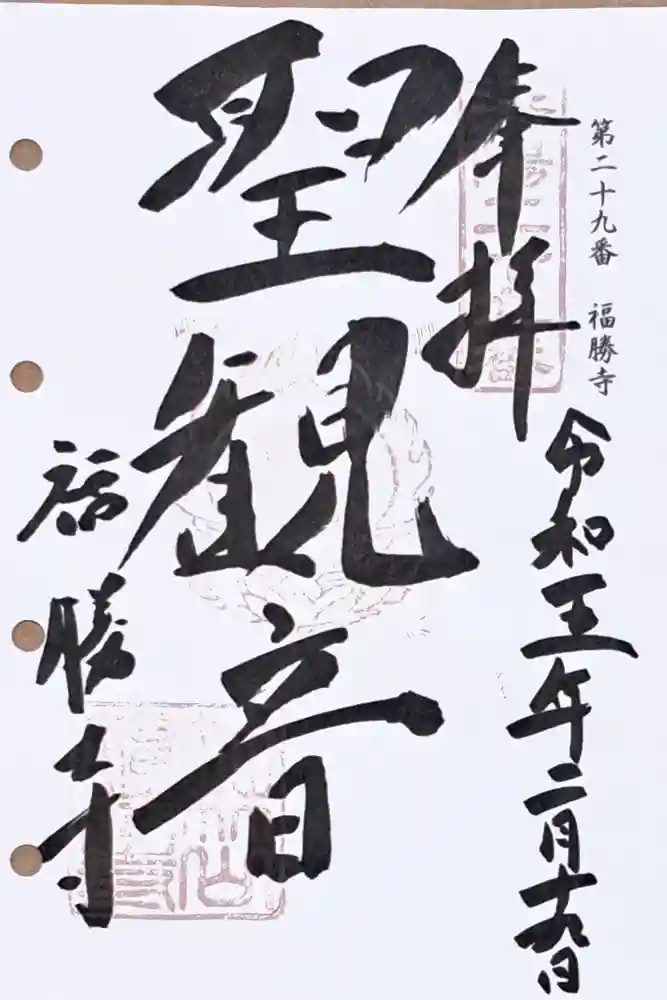 第二十九番　福勝寺
令和五年二月十九日
奉拝
聖観音
福勝寺